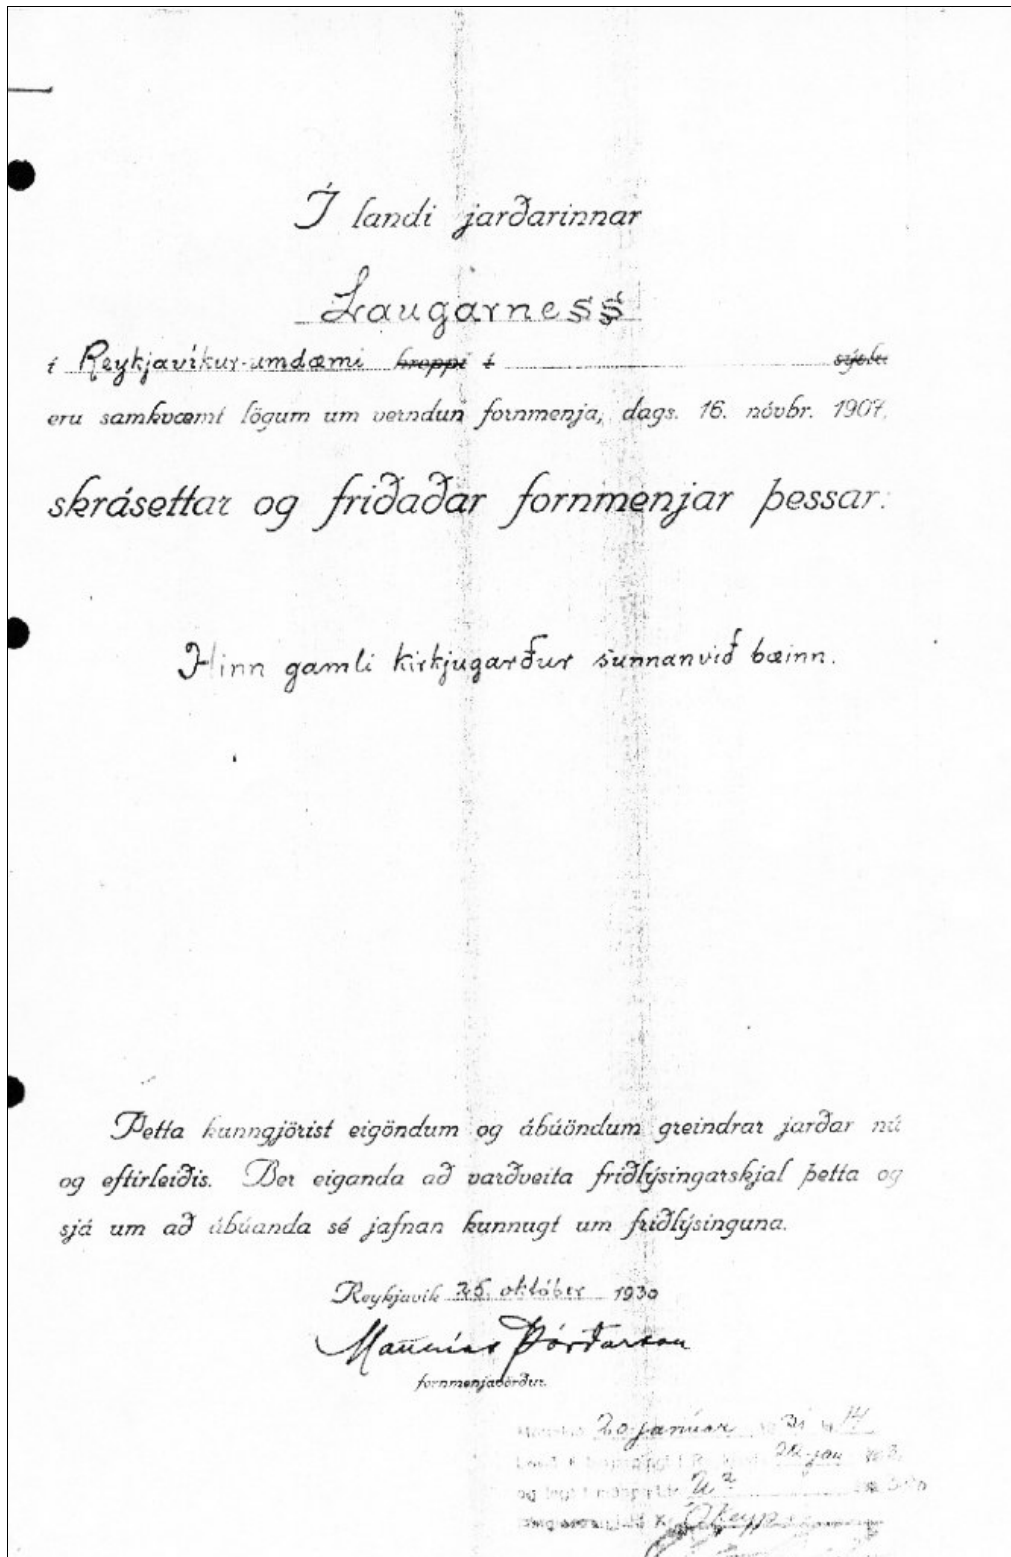 Í landi jarðarinnar
Laugarness
í Reykjavíkur-umdæmi hreppi í sýslu
eru samkvæmt lögum um verndun fornmenja, dags. 16. nóvbr. 1907,
skrásettar og friðaðar fornmenjar þessar:
Hinn gamli kirkjugarður sunnanvið bæinn.
Þetta kunngjörist eigöndum og ábúöndum greindrar jarðar nú
og eftirleiðis. Ber eiganda að varðveita friðlýsingarskjal þetta og
sjá um að ábúanda sé jafnan kunnugt um friðlýsinguna.
Reykjavík 25. október 1930
Matthías Þórðarson
fornmenjavörður.
20 janúar